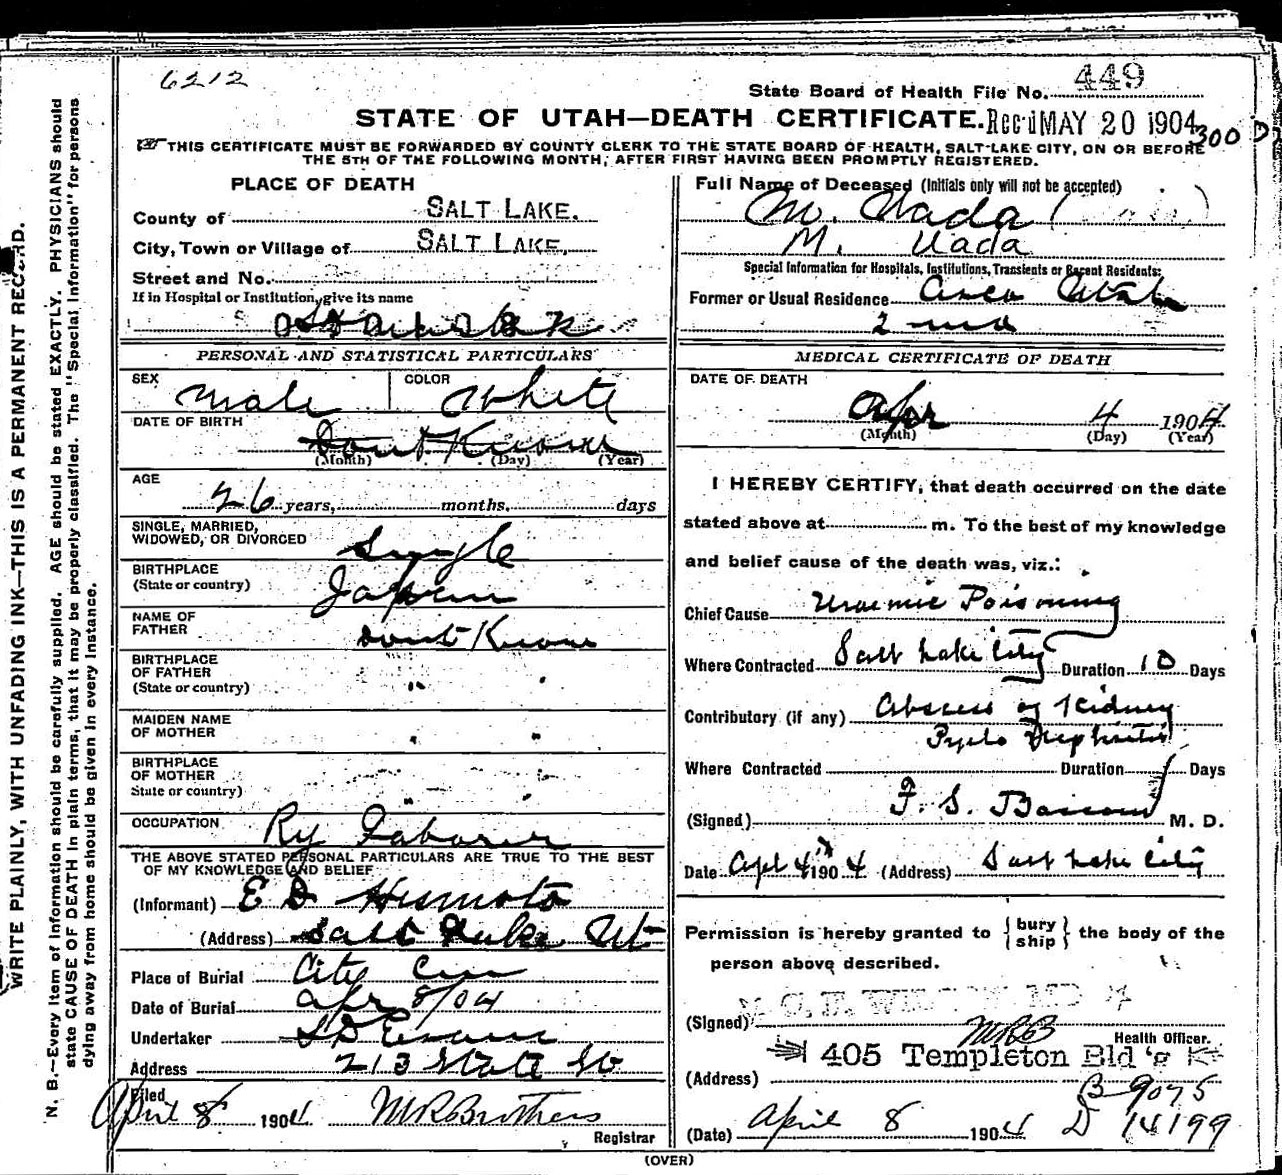 6212
State Board of Health File No. 449
STATE OF UTAH—DEATH CERTIFICATE. Rec'd MAY 20 1904 300 D
THIS CERTIFICATE MUST BE FORWARDED BY COUNTY CLERK TO THE STATE BOARD OF HEALTH, SALT LAKE CITY, ON OR BEFORE
THE 5TH OF THE FOLLOWING MONTH, AFTER FIRST HAVING BEEN PROMPTLY REGISTERED.
WRITE PLAINLY, WITH UNFADING INK—THIS IS A PERMANENT RECORD.
N. B.—Every item of information should be carefully supplied. AGE should be stated EXACTLY. PHYSICIANS should
state CAUSE OF DEATH in plain terms, that it may be properly classified. The "Special Information" for persons
dying away from home should be given in every instance.
PLACE OF DEATH
County of SALT LAKE.
City, Town or Village of SALT LAKE.
Street and No.
If in Hospital or Institution, give its name
PERSONAL AND STATISTICAL PARTICULARS
SEX Male COLOR White
DATE OF BIRTH Dont Know
(Month) (Day) (Year)
AGE
26 years, months, days
SINGLE, MARRIED,
WIDOWED, OR DIVORCED Single
BIRTHPLACE
(State or country) Japan
NAME OF
FATHER Dont Know
BIRTHPLACE
OF FATHER
(State or country) " "
MAIDEN NAME
OF MOTHER " "
BIRTHPLACE
OF MOTHER
State or country) " "
OCCUPATION Ry Laborer
THE ABOVE STATED PERSONAL PARTICULARS ARE TRUE TO THE BEST
OF MY KNOWLEDGE AND BELIEF
(Informant) E D Hismoto
(Address) Salt Lake Ut
Place of Burial City Cem
Date of Burial Apr 8/04
Undertaker S D Evans
Address 213 State St
Filed
April 8 1904 M R Brothers
Registrar
Full Name of Deceased (Initials only will not be accepted)
M. Uada
M. Uada
Special Information for Hospitals, Institutions, Transients or Recent Residents:
Former or Usual Residence Utah
2 mo
MEDICAL CERTIFICATE OF DEATH
DATE OF DEATH
Apr 4 1904
(Month) (Day) (Year)
I HEREBY CERTIFY, that death occurred on the date
stated above at m. To the best of my knowledge
and belief cause of the death was, viz.:
Chief Cause Uraemic Poisoning
Where Contracted Salt Lake City Duration 10 Days
Contributory (if any) Abscess of Kidney
Pyelo Nephritis
Where Contracted Duration Days
(Signed) F. S. Bascom M. D.
Date Apl 4th 1904 (Address) Salt Lake City
Permission is hereby granted to {bury ship} the body of the
person above described.
(Signed) MRB
Health Officer.
405 Templeton Bld'g
(Address)
B 9075
(Date) April 8 1904 D 14199
(OVER)